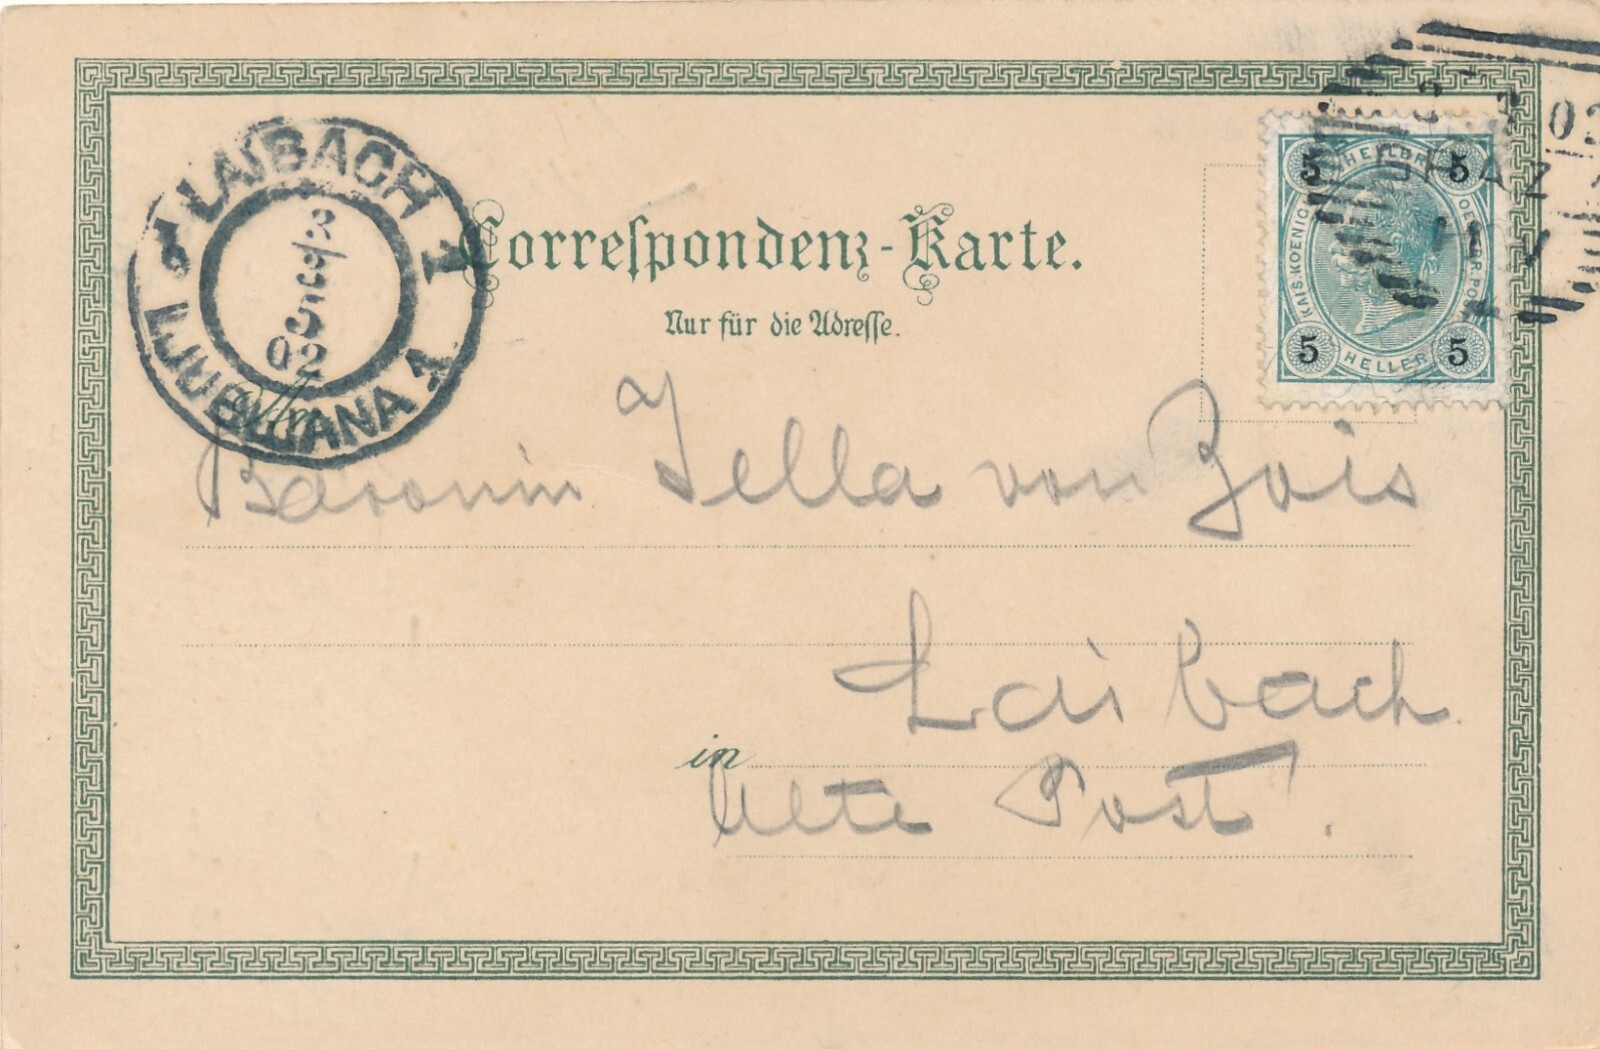 Correspondenz-Karte.
Nur für die Adresse.
LAIBACH 1
LJUBLJANA 1
02
02
GRAZ
5 5
KAIS. KOENIG.
HELLER
5 5
An
Baronin Jella von Zois
Laibach
in
Alte Post.